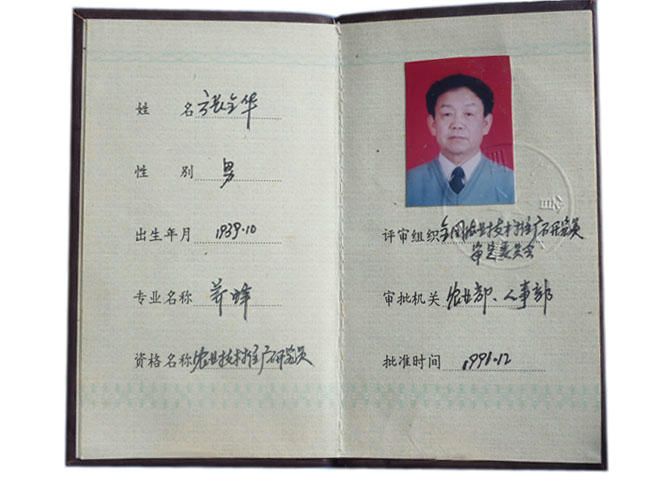 姓 名 张全华
性 别 男
出生年月 1939.10
专业名称 养蜂
资格名称 农业技术推广研究员
评审组织 全国农业技术推广研究员
审定委员会
审批机关 农业部、人事部
批准时间 1991.12